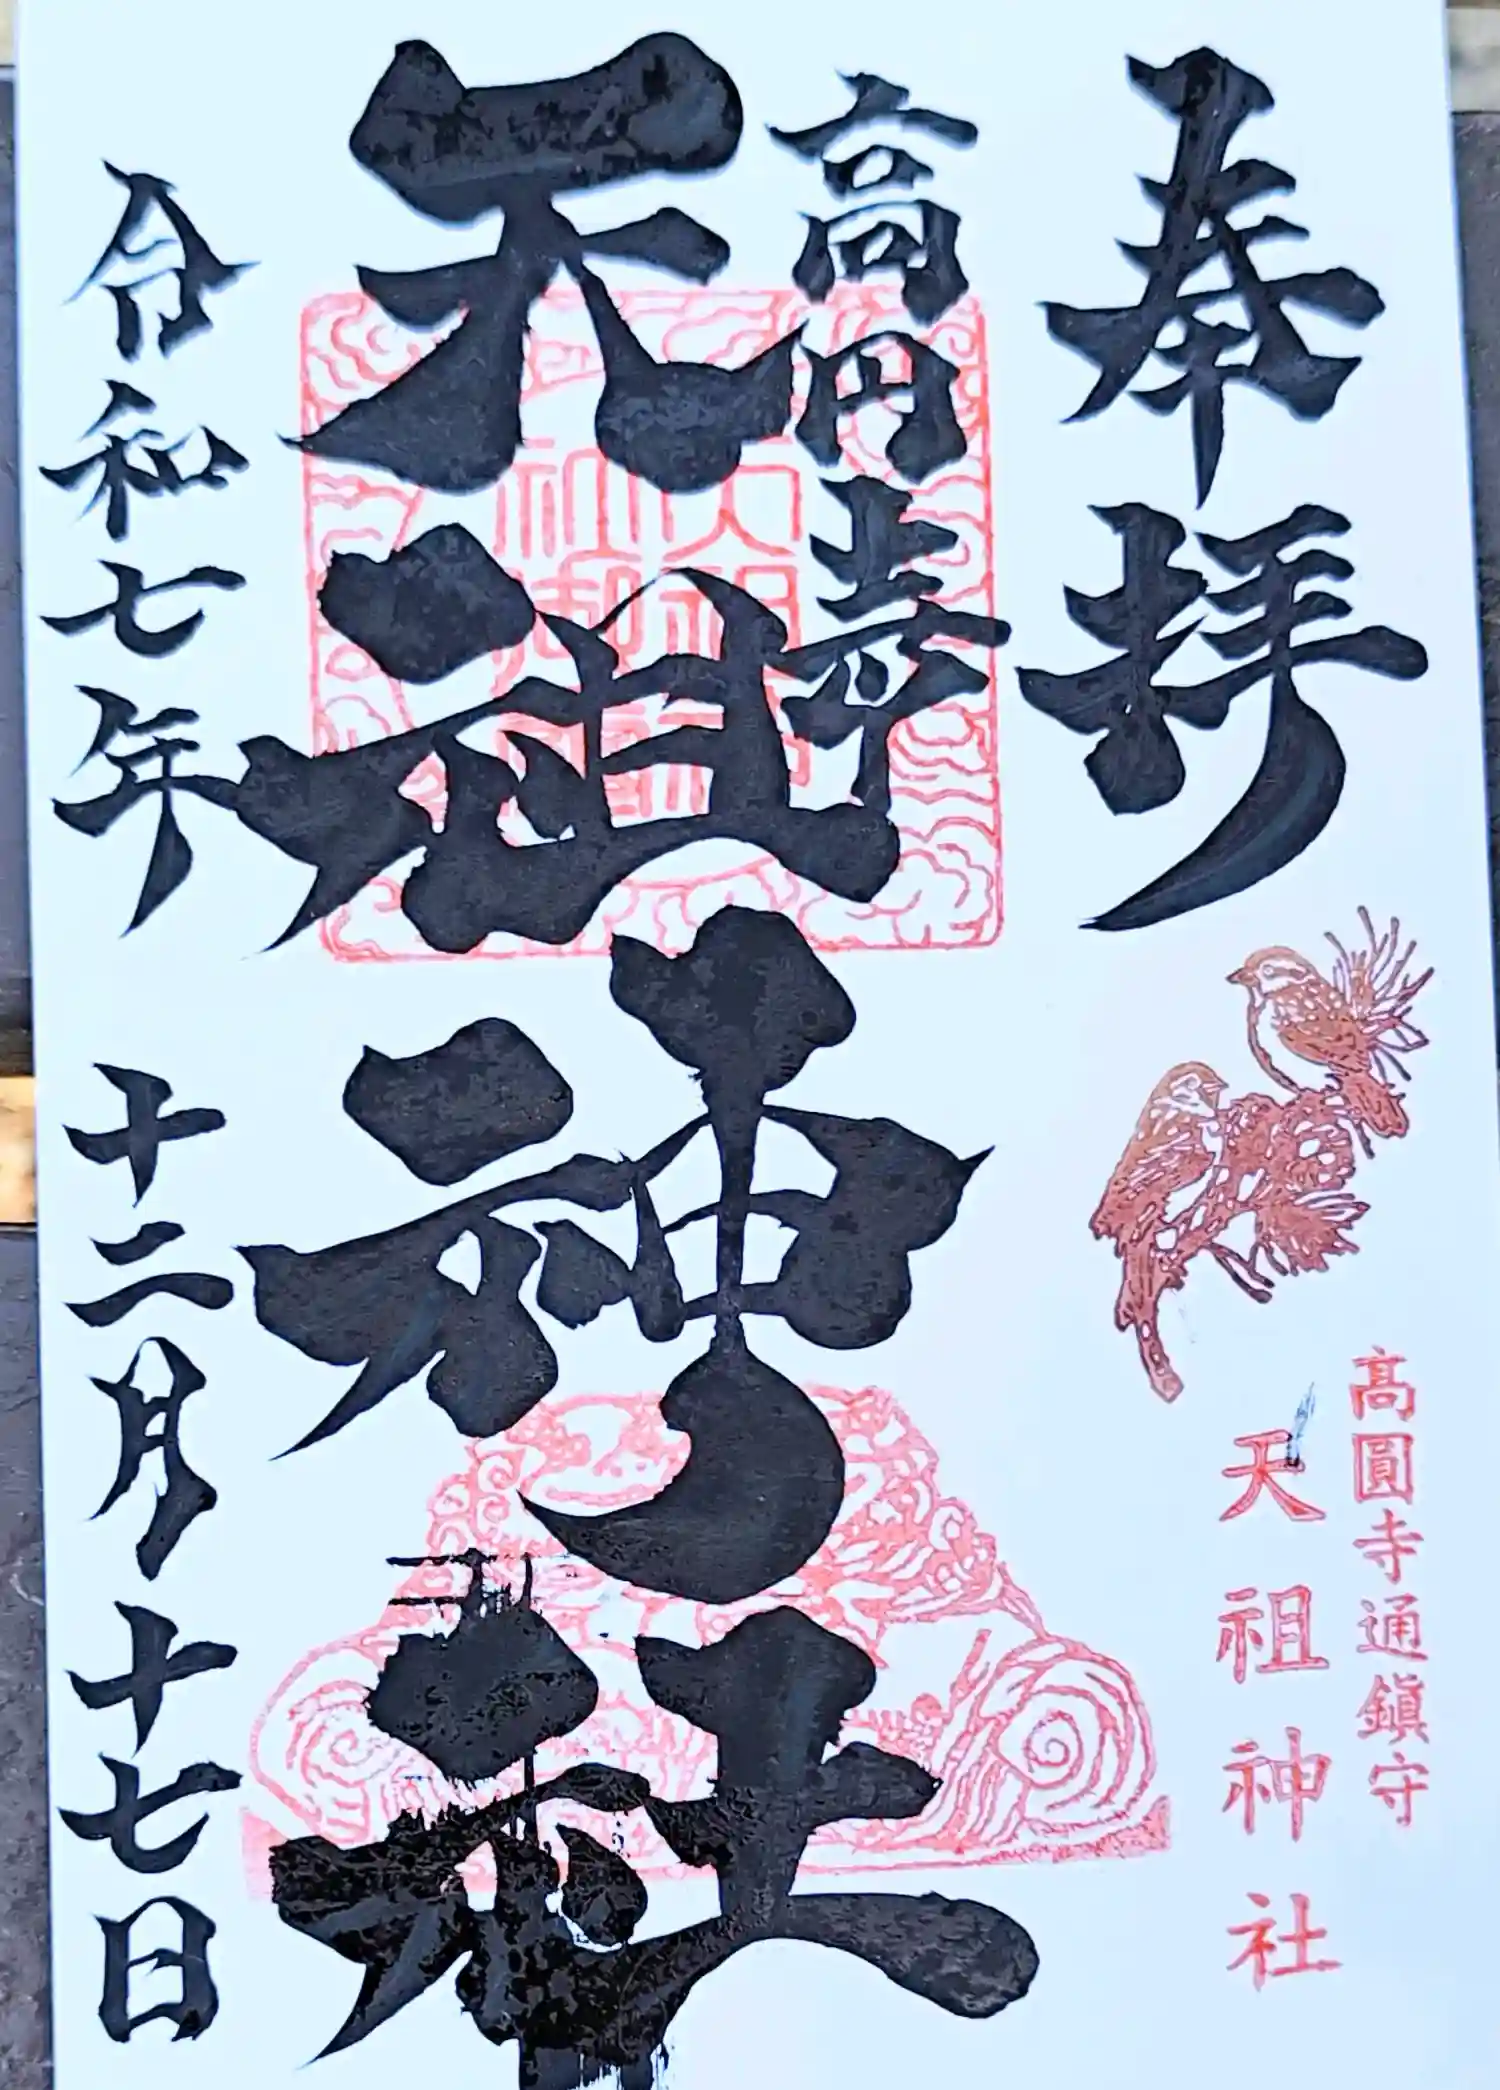 奉拝
高圓寺通鎮守
天祖神社
高円寺
天祖神社
令和七年 十二月十七日